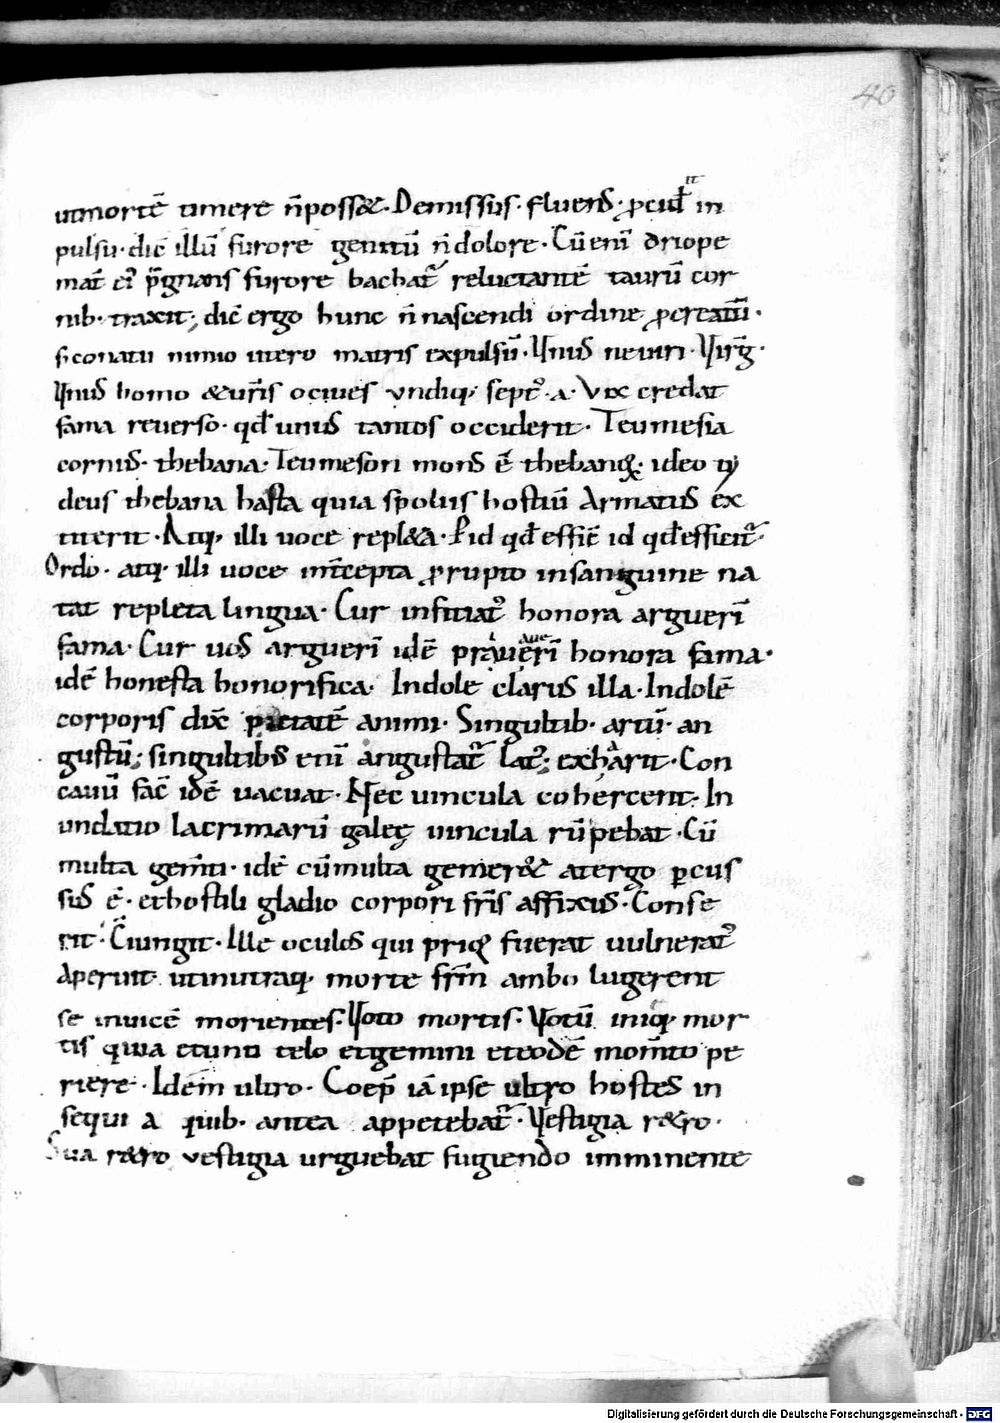 40
utmortē timere n̄poss&. Demissus. fluens. ꝓcul̄ in
pulsu. dic̄ illū furore genitū n̄ dolore. Cū eni driope
mat̄ ei p̄gnans furore bachat̄ reluctantē taurū cor
nib. traxit; dic̄ ergo hunc n̄ nascendi ordine
s; conatu nimio utero matris expulsū. Unus neuiri. Virḡ.
Unus homo &ur̄is ociues undiq; sept̄. a. Vix credat
fama reuerso. qd̄ unus tantos occiderit. Teumesia
cornus. thebana. Teumeson mons ē thebanoꝝ. ideo
deus thebana hasta quia spoliis hostiū Armatus ex
titerit. Atq; illi uoce repl&a. P id qd̄ effic̄ id qd̄ efficit̄
Ordo. atq; illi uoce int̄cepta ꝓrupto insanguine na
tat repleta lingua. Cur infitiat̄ honora arguerī
fama. Cur uos arguerī idē honora fama.
idē honesta honorifica. Indole clarus illa. Indolē
corporis dix̄ pietatē animi. Singultib. artū. an
gustū; singultibus enī angustat̄ lat̄; exhārit. Con
cauū fac̄ idē uacuat. Nec uincula cohercent. In
undatio lacrimarū galeę uincula rūpebat. Cū
multa gem̄ti. idē cūmulta gemer& atergo ꝑcus
sus ē. ethostili gladio corpori fr̄is affixus. Conse
rit. Ciungit. Ille oculos qui priꝰ fuerat uulnerat̄
Aperuit utinutraq; morte fr̄m ambo lugerent
se inuicē morientes. Uoto mortis. Votū iniq; mor
tis quia etuno telo etgemini eteodē mom̄to pe
riere. Idem ultro. Coep̄ iā ipse ultro hostes in
sequi a quib. antea appetebat̄. Vestigia r&ro.
Sua r&ro vestigia urguebat fugiendo imminente
Digitalisierung gefördert durch die Deutsche Forschungsgemeinschaft - DFG